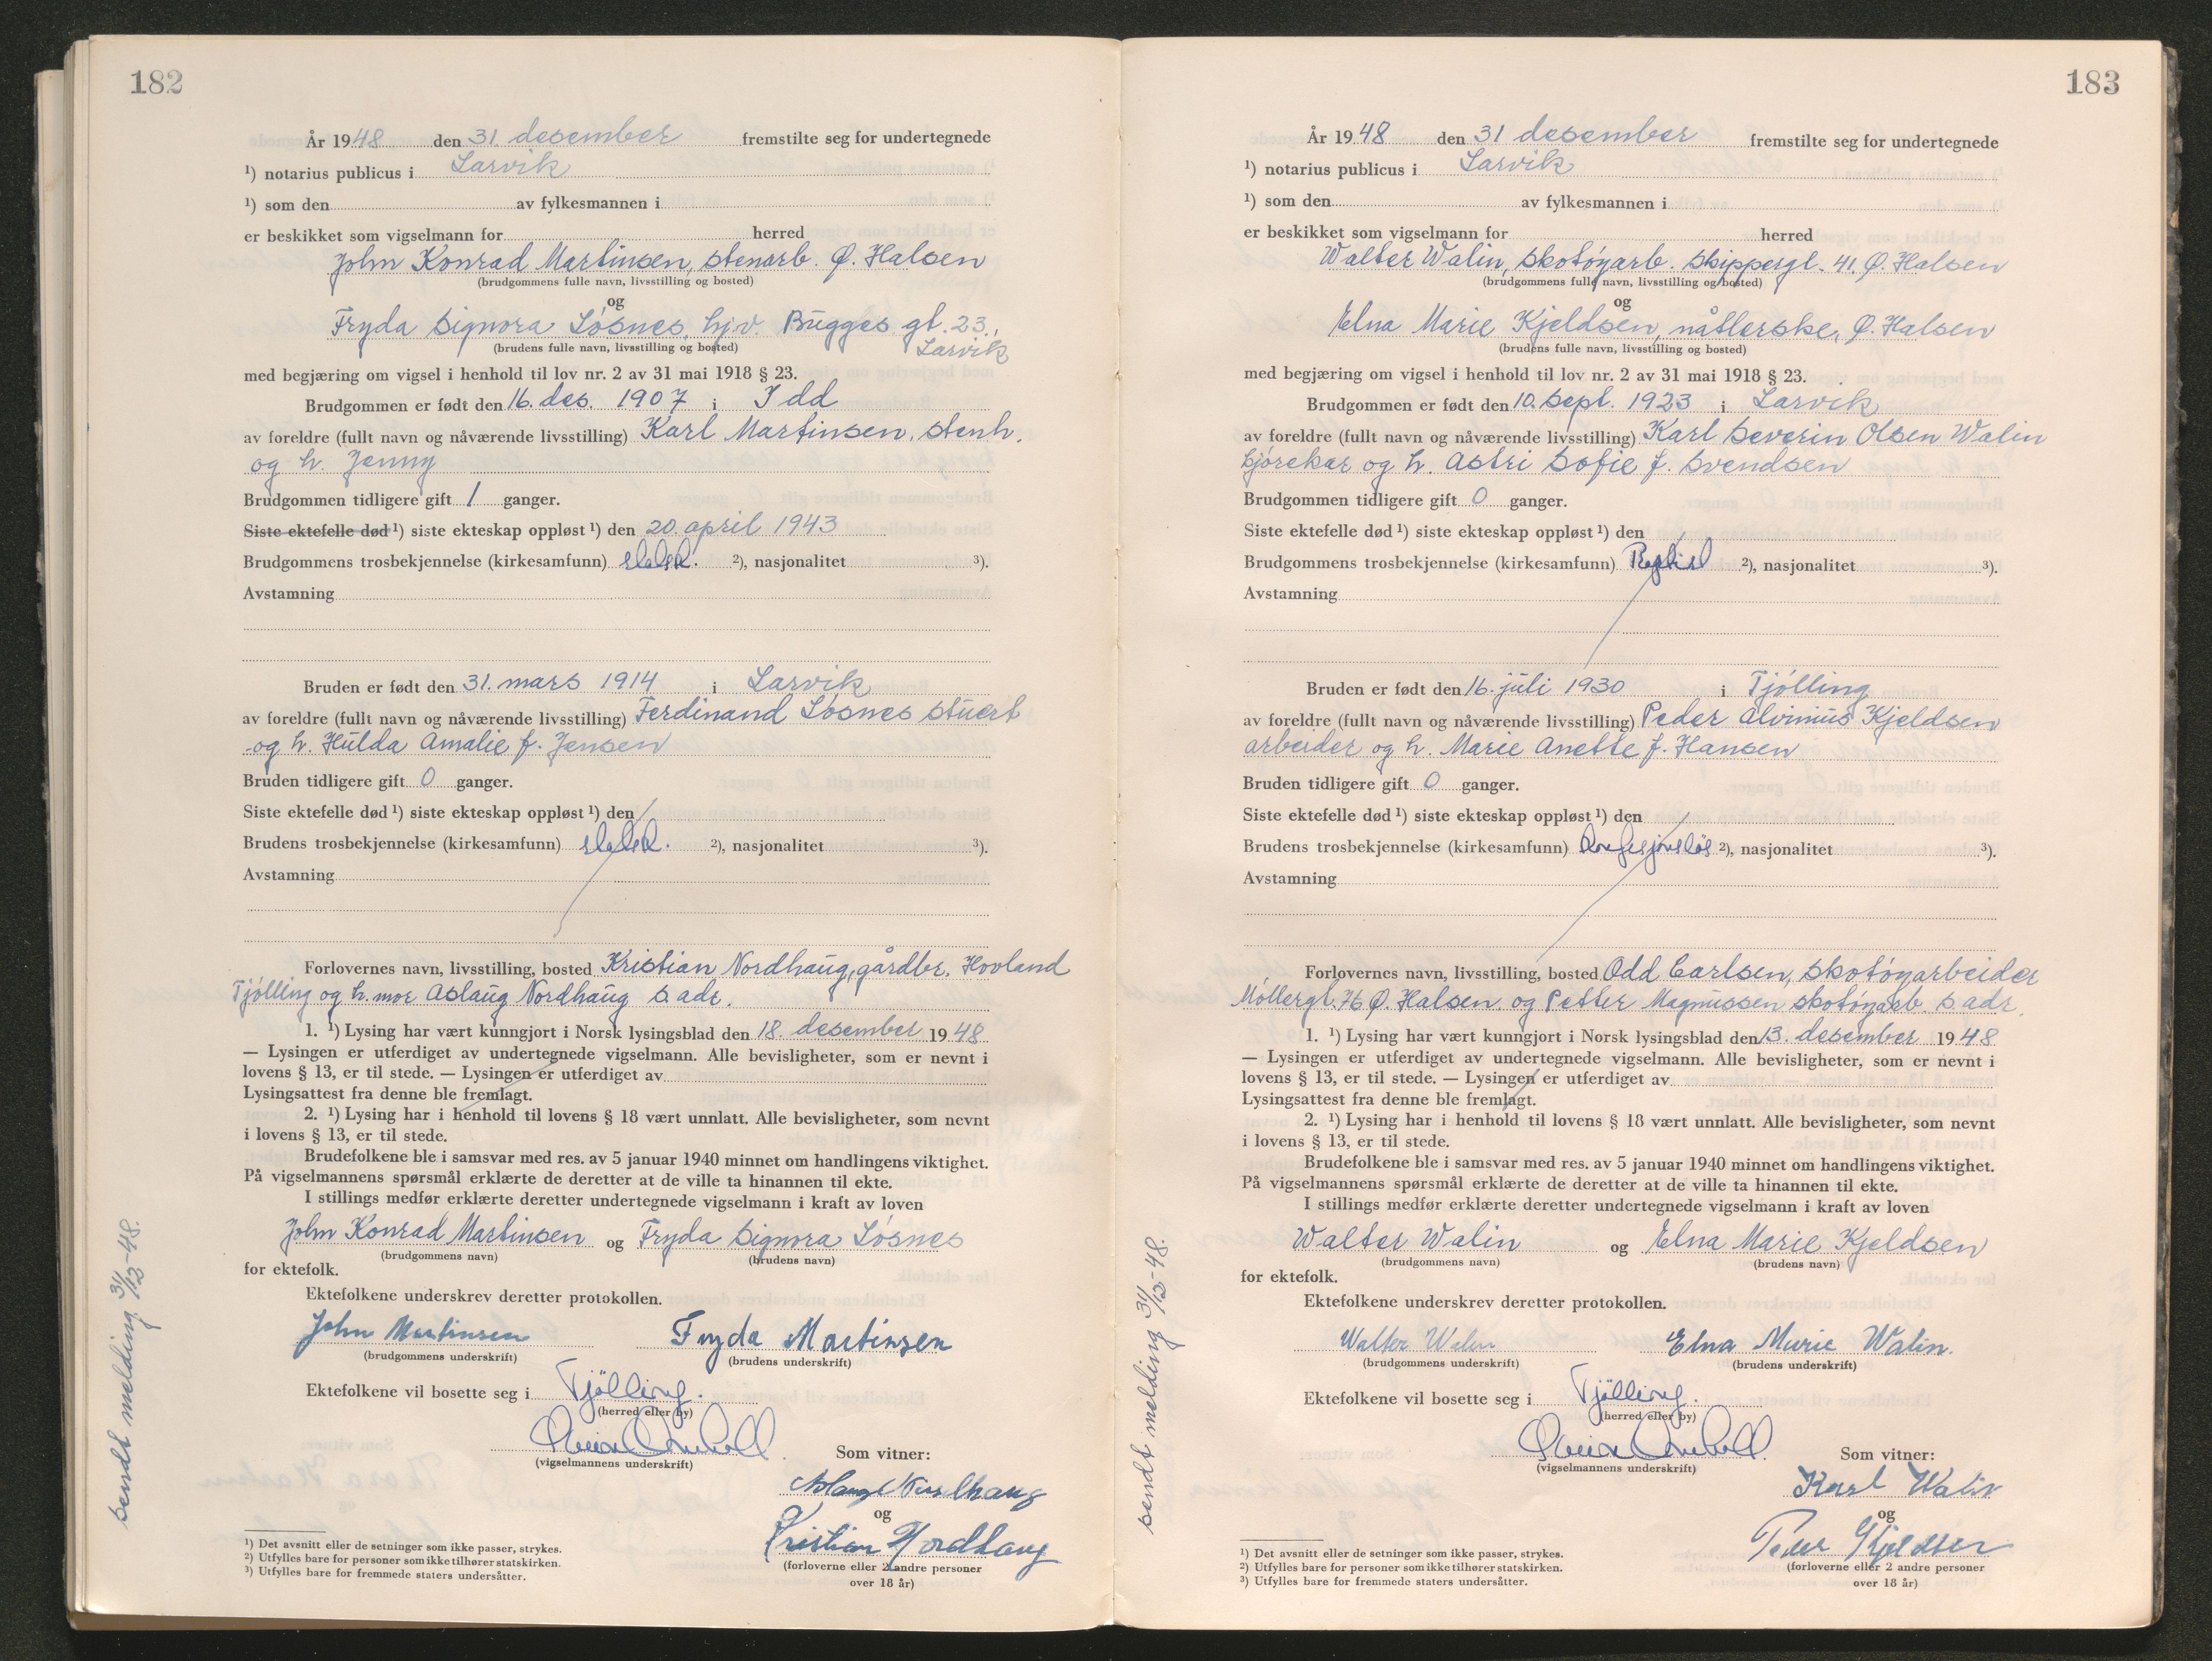 182
År 1948 den 31 desember fremstilte seg for undertegnede
¹) notarius publicus i Larvik
¹) som den av fylkesmannen i
er beskikket som vigselmann for herred
John Konrad Martinsen, stenarb. Ø. Halsen
(brudgommens fulle navn, livsstilling og bosted)
og
Fryda Signora Løsnes, hj.v. Bugges gt. 23.,
Larvik
(brudens fulle navn, livsstilling og bosted)
med begjæring om vigsel i henhold til lov nr. 2 av 31 mai 1918 § 23.
Brudgommen er født den 16. des. 1907 i Idd
av foreldre (fullt navn og nåværende livsstilling) Karl Martinsen, stenh.
og h. Jenny
Brudgommen tidligere gift 1 ganger.
Siste ektefelle død ¹) siste ekteskap oppløst ¹) den 20. april 1943
Brudgommens trosbekjennelse (kirkesamfunn) statsk. ²), nasjonalitet ³).
Avstamning
Bruden er født den 31. mars 1914 i Larvik
av foreldre (fullt navn og nåværende livsstilling) Ferdinand Løsnes stuert
og h. Hulda Amalie f. Jensen
Bruden tidligere gift 0 ganger.
Siste ektefelle død ¹) siste ekteskap oppløst ¹) den
Brudens trosbekjennelse (kirkesamfunn) statsk. ²), nasjonalitet ³).
Avstamning
Forlovernes navn, livsstilling, bosted Kristian Nordhaug, gårdbr. Hovland
Tjølling og h. mor Aslaug Nordhaug s. adr.
1. ¹) Lysing har vært kunngjort i Norsk lysingsblad den 18. desember 1948
— Lysingen er utferdiget av undertegnede vigselmann. Alle bevisligheter, som er nevnt i
lovens § 13, er til stede. — Lysingen er utferdiget av
Lysingsattest fra denne ble fremlagt.
2. ¹) Lysing har i henhold til lovens § 18 vært unnlatt. Alle bevisligheter, som nevnt
i lovens § 13, er til stede.
Brudefolkene ble i samsvar med res. av 5 januar 1940 minnet om handlingens viktighet.
På vigselmannens spørsmål erklærte de deretter at de ville ta hinannen til ekte.
I stillings medfør erklærte deretter undertegnede vigselmann i kraft av loven
John Konrad Martinsen og Fryda Signora Løsnes
(brudgommens navn) (brudens navn)
for ektefolk.
Ektefolkene underskrev deretter protokollen.
John Martinsen Fryda Martinsen
(brudgommens underskrift) (brudens underskrift)
Ektefolkene vil bosette seg i Tjølling.
(herred eller by)
(vigselmannens underskrift)
Som vitner:
Aslaug Nordhaug
og
Kristian Nordhaug
(forloverne eller 2 andre personer
over 18 år)
¹) Det avsnitt eller de setninger som ikke passer, strykes.
²) Utfylles bare for personer som ikke tilhører statskirken.
³) Utfylles bare for fremmede staters undersåtter.
sendt melding 31/12-48.
183
År 1948 den 31 desember fremstilte seg for undertegnede
¹) notarius publicus i Larvik
¹) som den av fylkesmannen i
er beskikket som vigselmann for herred
Walter Walin, skotøyarb. Skippergt. 41, Ø. Halsen
(brudgommens fulle navn, livsstilling og bosted)
og
Elna Marie Kjeldsen, nåtlerske, Ø. Halsen
(brudens fulle navn, livsstilling og bosted)
med begjæring om vigsel i henhold til lov nr. 2 av 31 mai 1918 § 23.
Brudgommen er født den 10. sept. 1923 i Larvik
av foreldre (fullt navn og nåværende livsstilling) Karl Severin Olsen Walin
kjørekar og h. Astri Sofie f. Svendsen
Brudgommen tidligere gift 0 ganger.
Siste ektefelle død ¹) siste ekteskap oppløst ¹) den
Brudgommens trosbekjennelse (kirkesamfunn) Baptist ²), nasjonalitet ³).
Avstamning
Bruden er født den 16. juli 1930 i Tjølling
av foreldre (fullt navn og nåværende livsstilling) Peder Alvinius Kjeldsen
arbeider og h. Marie Anette f. Hansen
Bruden tidligere gift 0 ganger.
Siste ektefelle død ¹) siste ekteskap oppløst ¹) den
Brudens trosbekjennelse (kirkesamfunn) konfesjonsløs ²), nasjonalitet ³).
Avstamning
Forlovernes navn, livsstilling, bosted Odd Carlsen, skotøyarbeider
Møllergt. 76 Ø. Halsen og Petter Magnussen skotøyarb. s. adr.
1. ¹) Lysing har vært kunngjort i Norsk lysingsblad den 13. desember 1948
— Lysingen er utferdiget av undertegnede vigselmann. Alle bevisligheter, som er nevnt i
lovens § 13, er til stede. — Lysingen er utferdiget av
Lysingsattest fra denne ble fremlagt.
2. ¹) Lysing har i henhold til lovens § 18 vært unnlatt. Alle bevisligheter, som nevnt
i lovens § 13, er til stede.
Brudefolkene ble i samsvar med res. av 5 januar 1940 minnet om handlingens viktighet.
På vigselmannens spørsmål erklærte de deretter at de ville ta hinannen til ekte.
I stillings medfør erklærte deretter undertegnede vigselmann i kraft av loven
Walter Walin og Elna Marie Kjeldsen
(brudgommens navn) (brudens navn)
for ektefolk.
Ektefolkene underskrev deretter protokollen.
Walter Walin Elna Marie Walin.
(brudgommens underskrift) (brudens underskrift)
Ektefolkene vil bosette seg i Tjølling.
(herred eller by)
(vigselmannens underskrift)
Som vitner:
Karl Walin
og
Peder Kjeldsen
(forloverne eller 2 andre personer
over 18 år)
¹) Det avsnitt eller de setninger som ikke passer, strykes.
²) Utfylles bare for personer som ikke tilhører statskirken.
³) Utfylles bare for fremmede staters undersåtter.
sendt melding 31/12-48.